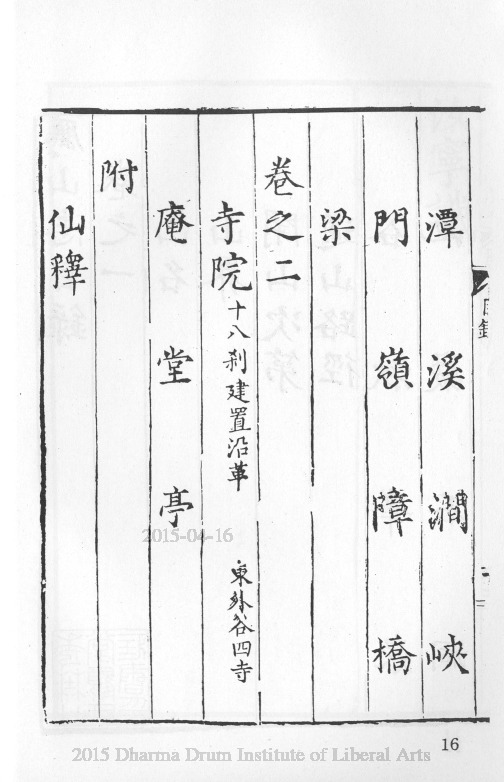 目錄
二
潭 溪 澗 峽
門 嶺 障 橋
梁
卷之二
寺院十八刹建置沿革 東外谷四寺
庵 堂 亭
附
仙釋
2015-04-16
16
2015 Dharma Drum Institute of Liberal Arts